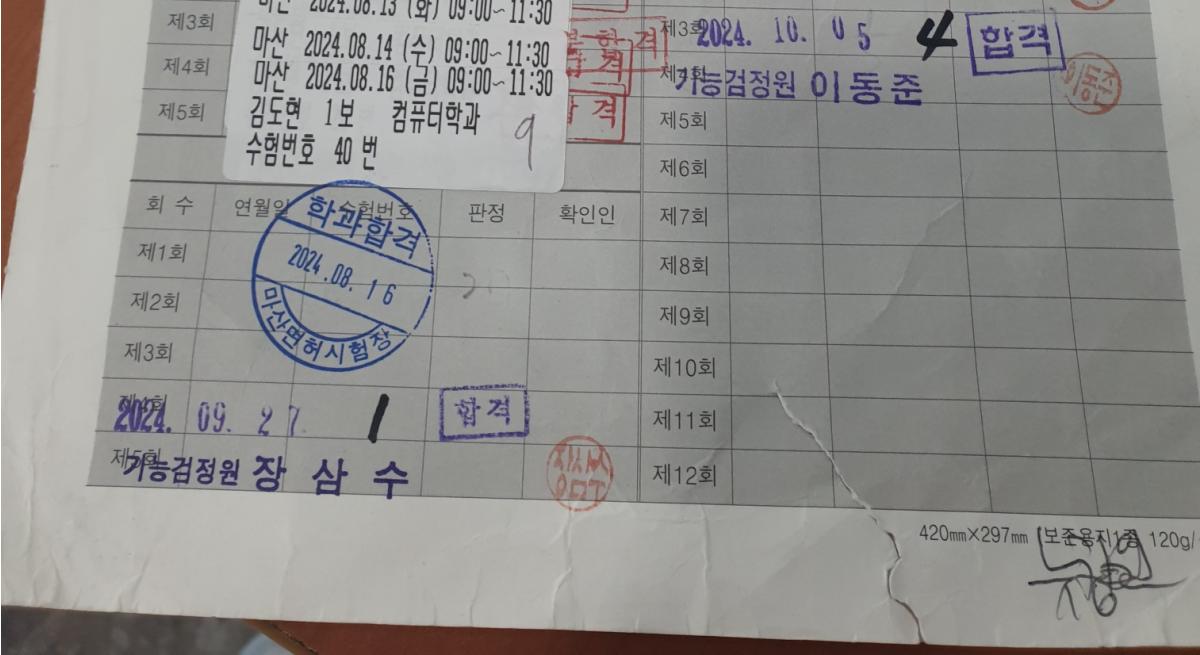 제3회
마산 2024.08.13 (화) 09:00~11:30
제4회
마산 2024.08.14 (수) 09:00~11:30
마산 2024.08.16 (금) 09:00~11:30
제5회
김도현 1보 컴퓨터학과
9
수험번호 40 번
합격
회 수 연월일 수험번호 판정 확인인
학과합격
2024.08.16
마산면허시험장
제1회
제2회
제3회
제4회
2024. 09. 27 1 합격
제5회
기능검정원 장삼수
제3회
2024. 10. 05 4 합격
제4회
기능검정원 이동준
이동준
제5회
제6회
제7회
제8회
제9회
제10회
제11회
제12회
420㎜×297㎜ 보존용지1종 120g/